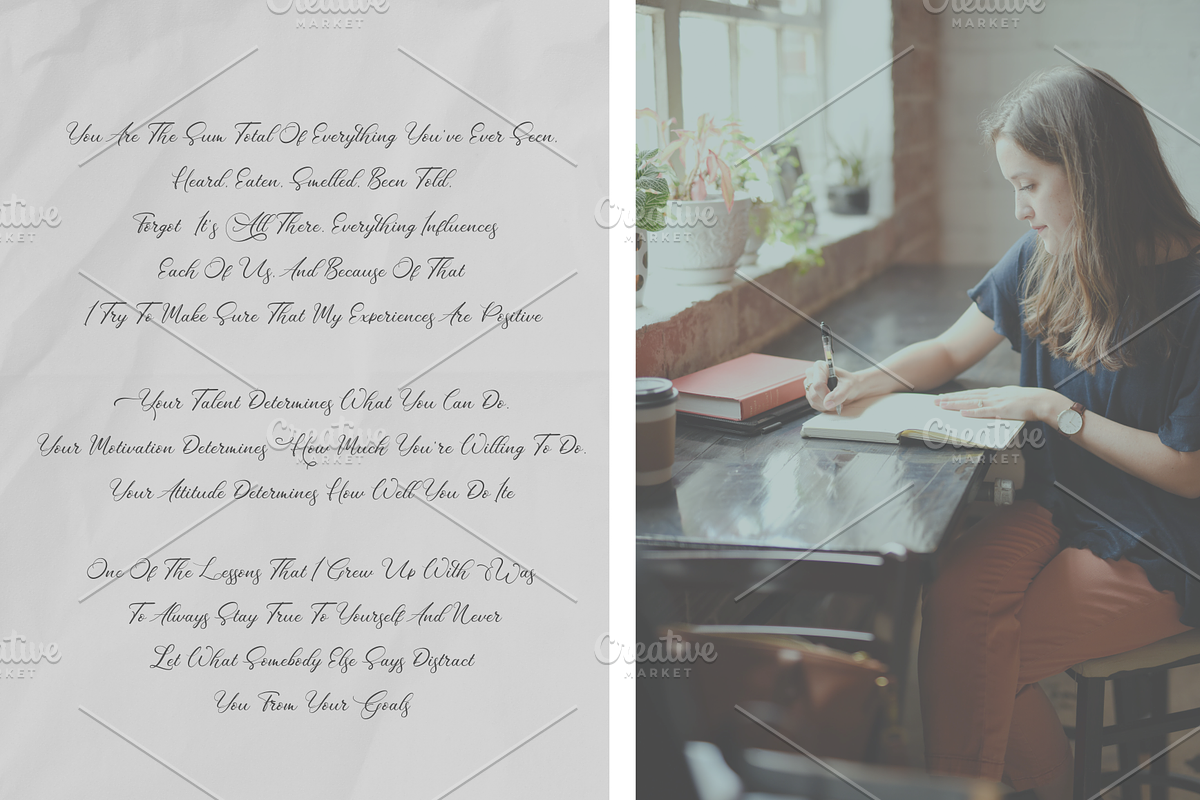 You Are The Sum Total Of Everything You've Ever Seen,
Heard, Eaten, Smelled, Been Told,
Forgot It's All There. Everything Influences
Each Of Us, And Because Of That
I Try To Make Sure That My Experiences Are Positive
Your Talent Determines What You Can Do.
Your Motivation Determines How Much You're Willing To Do.
Your Attitude Determines How Well You Do Ite
One Of The Lessons That I Grew Up With Was
To Always Stay True To Yourself And Never
Let What Somebody Else Says Distract
You From Your Goals
Creative
MARKET
Creative
MARKET
Creative
MARKET
Creative
MARKET
Creative
MARKET
Creative
MARKET
Creative
MARKET
Creative
MARKET